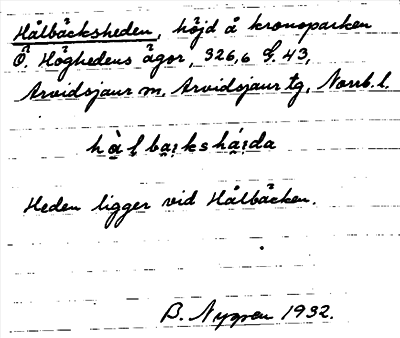 Hålbäcksheden, höjd å kronoparken
Ö. Höghedens ägor, 326,6 G. 43,
Arvidsjaur m. Arvidsjaur tg, Norrb. l.
hà̩l̥ba̤i̩kshái̩da
Heden ligger vid Hålbäcken.
B. Nygren 1932.